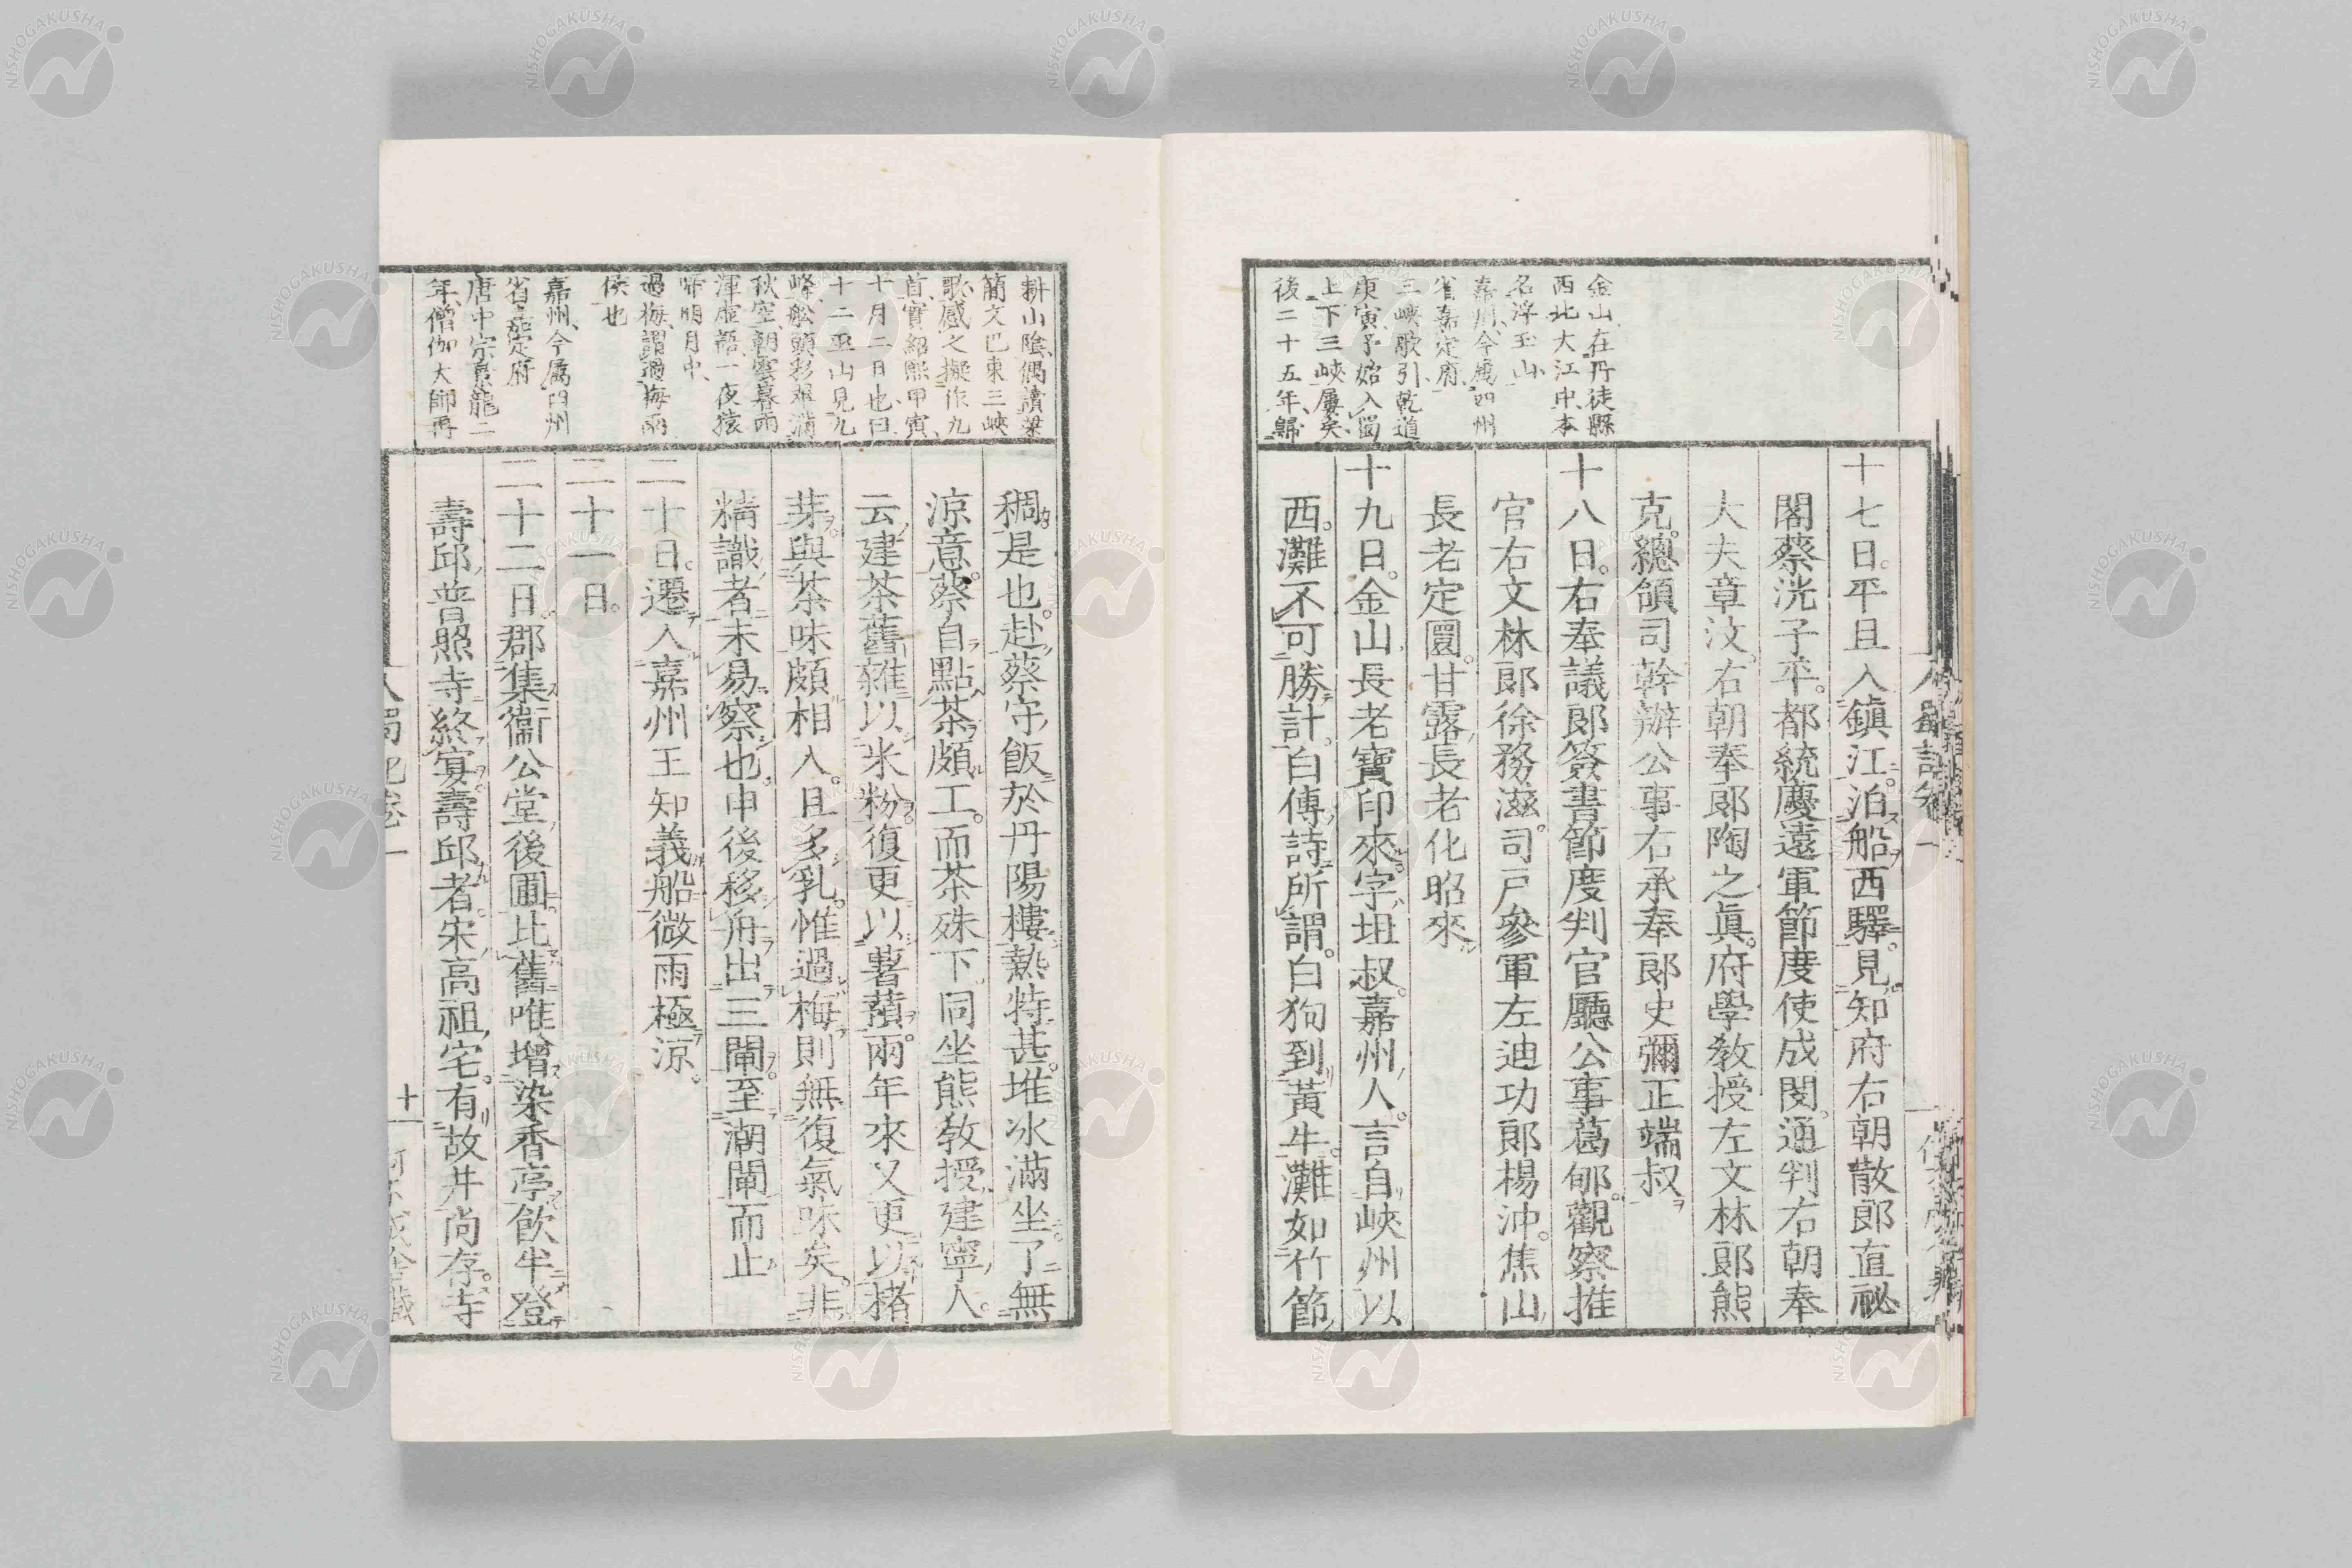 金山在丹徒縣
西北大江中本
名浮玉山
嘉州今屬四州
省嘉定府
三峽歌引乾道
庚寅予始入蜀
上下三峽屢矣
後二十五年歸
十七日。平旦入鎮江。泊船西驛。見知府右朝散郎直祕
閣蔡洸子平。都統慶遠軍節度使成閔。通判右朝奉
大夫章汶。右朝奉郎陶之真。府學教授左文林郎熊
克。總領司幹辦公事右承奉郎史彌正端叔
十八日。右奉議郎簽書節度判官廳公事葛郇。觀察推
官右文林郎徐務滋。司戶參軍左迪功郎楊沖。焦山
長老定圜。甘露長老化昭來
十九日。金山長老寶印來。字坦叔。嘉州人。言自峽州以
西。灘不可勝計。白傅詩所謂。白狗到黃牛。灘如竹節
耕山陰偶讀梁
簡文巴東三峽
歌感之擬作九
首實紹熙甲寅
十月二日也曰
十二巫山見九
峰船頭彩翠滿
秋空朝雲暮雨
渾虛語一夜猿
啼明月中
過梅謂過梅雨
候也
嘉州今屬四州
省嘉定府
唐中宗景龍二
年僧伽大師再
稠是也。赴蔡守飯於丹陽樓熱特甚。堆冰滿坐。了無
涼意。蔡自點茶。頗工。而茶殊下。同坐熊教授。建寧人。
云建茶舊雜以米粉。復更以薯蕷。兩年來又更以楮
芽。與茶味頗相入。且多乳。惟過梅則無復氣味矣。非
精識者未易察也。申後移舟出三閘。至潮閘而止
二十日。遷入嘉州王知義船微雨極涼。
二十一日。
二十二日。郡集衞公堂後圃。比舊唯增染香亭飲半登
壽邱。普照寺終宴。壽邱者。宋高祖宅。有故井尚存。寺